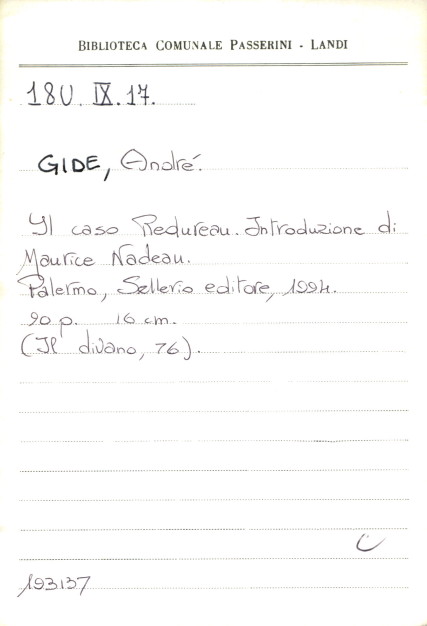 BIBLIOTECA COMUNALE PASSERINI - LANDI
18U. IX. 17.
GIDE, André.
Il caso Redureau. Introduzione di
Maurice Nadeau.
Palermo, Sellerio editore, 1994.
90 p. 16 cm.
(Il divano, 76).
C
193137